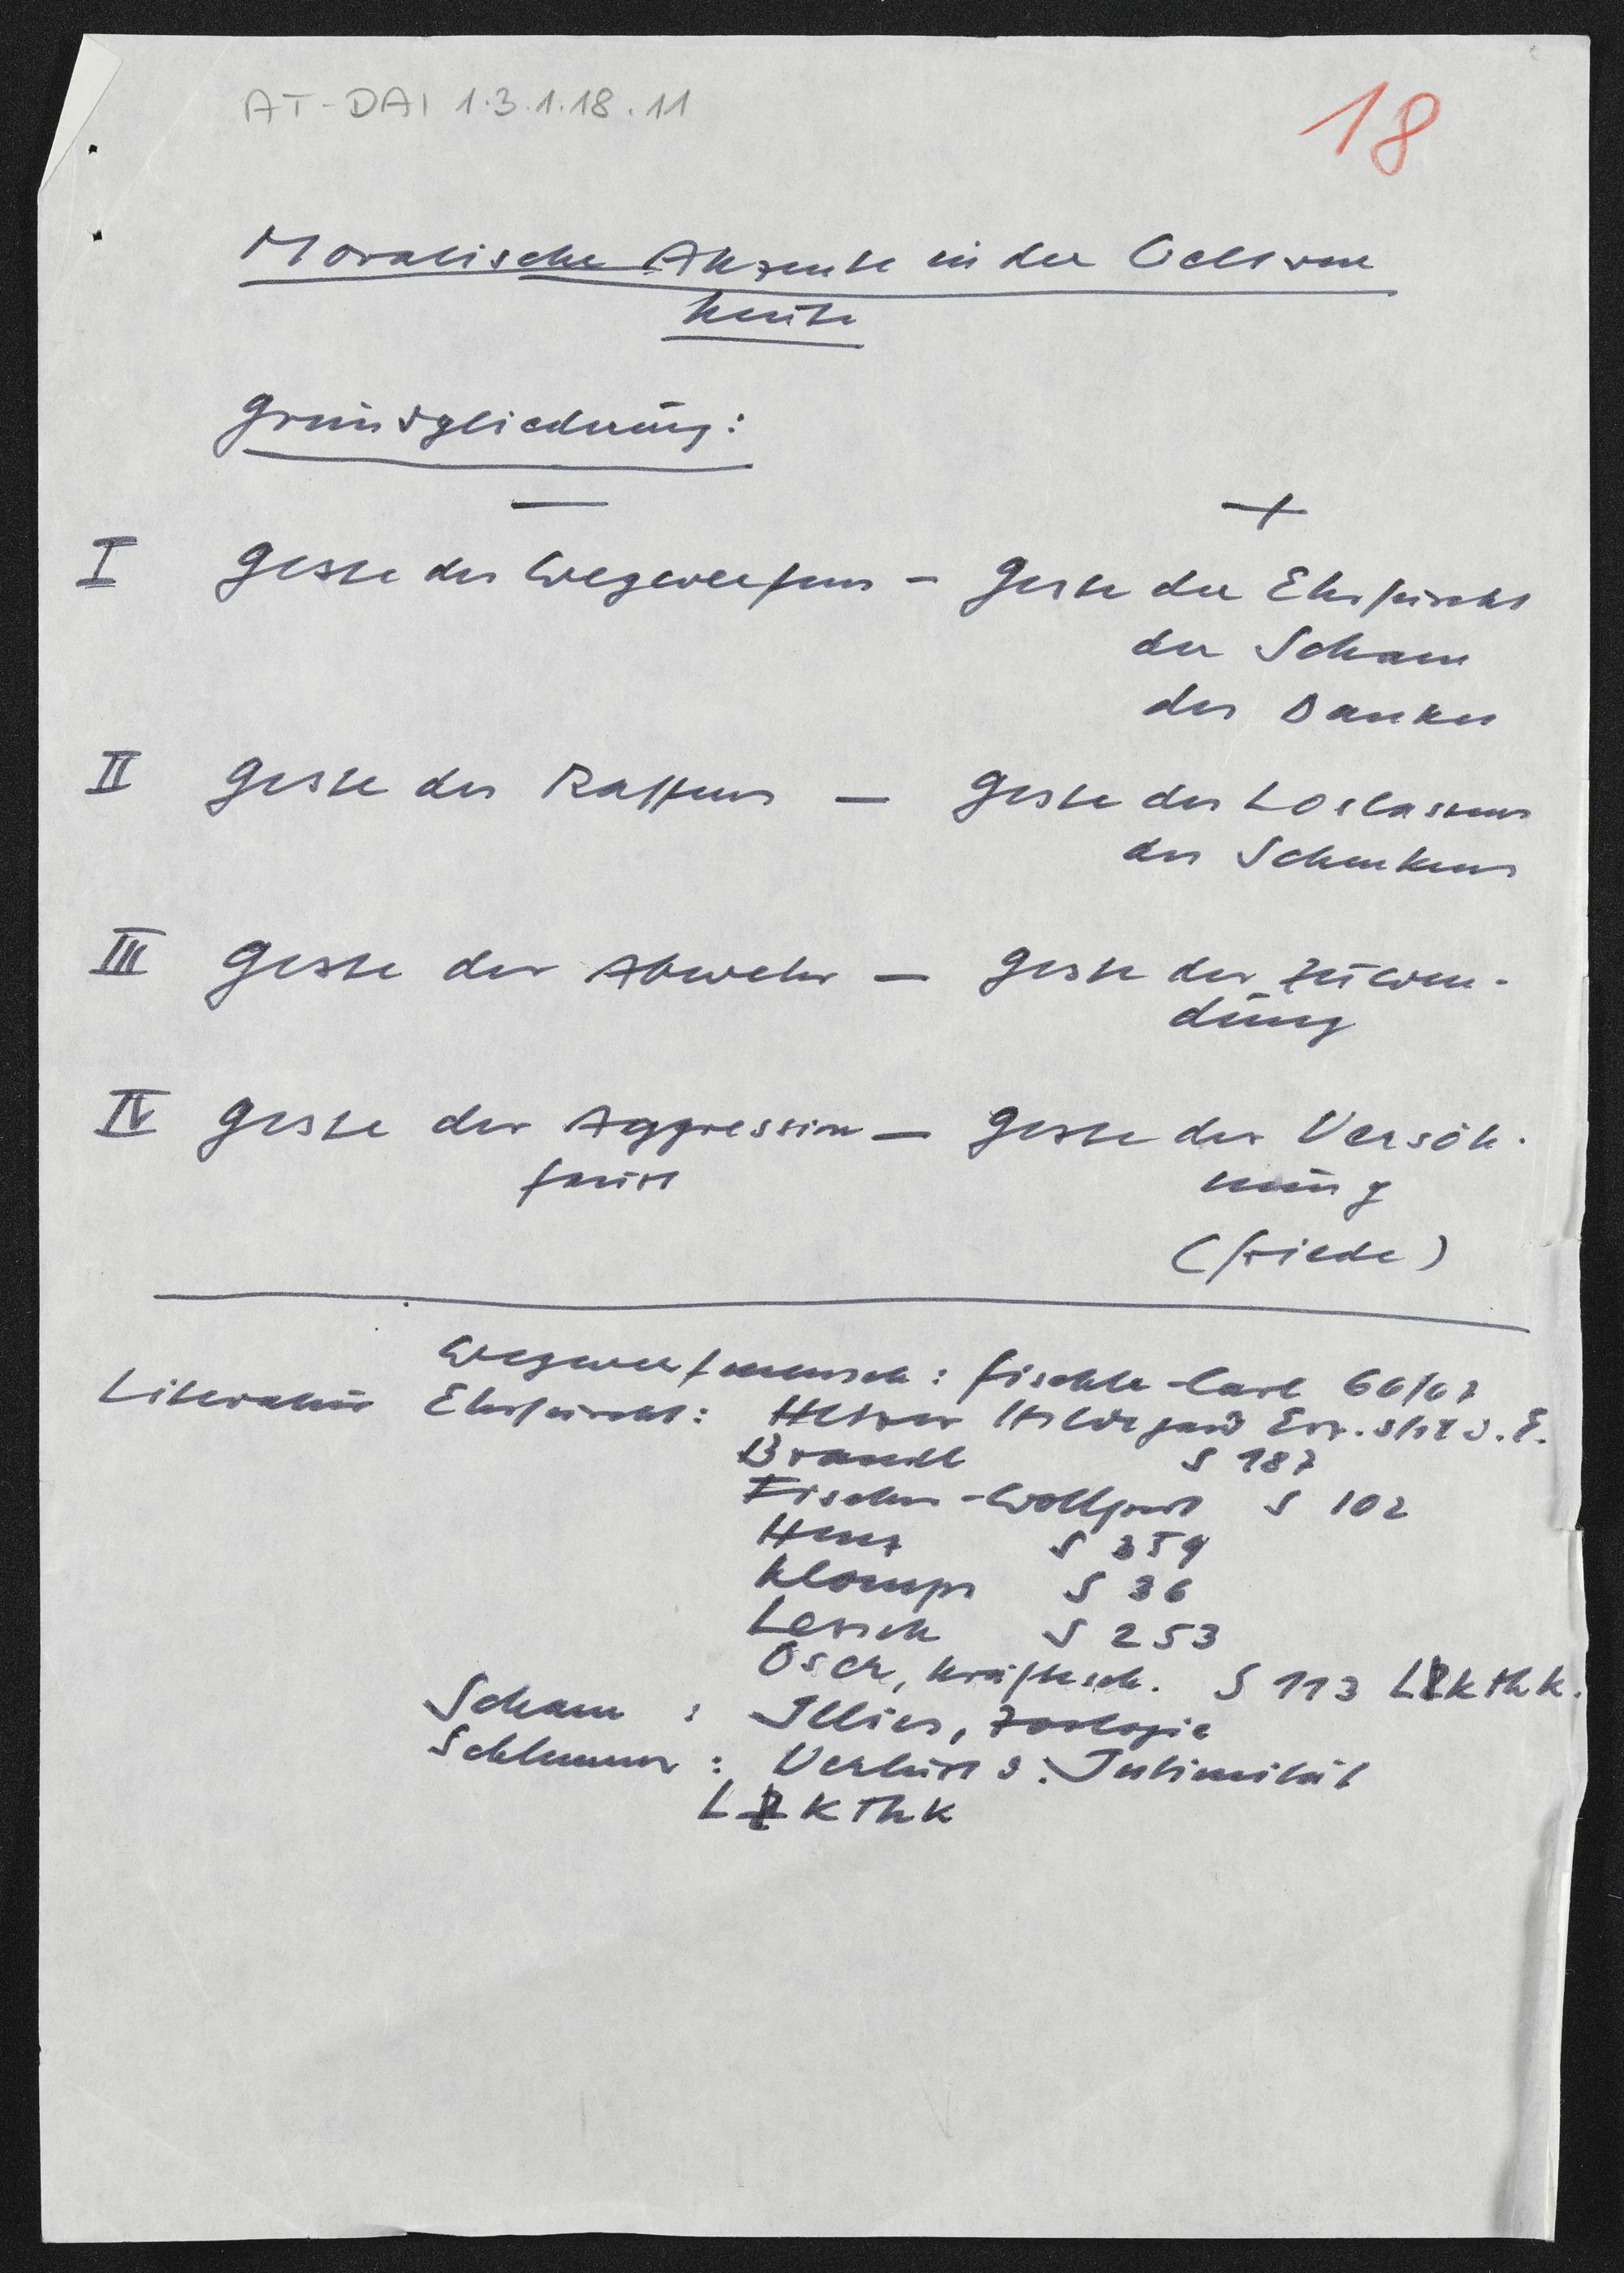 AT-DAI 1.3.1.18.11
18
Moralische Akzente in der
heute
Grundgliederung:
— +
I Geste des Wegwerfens – Geste der Ehrfurcht
der Scham
des Dankes
II Geste des Raffens — Geste des Loslassens
des Schenkens
III Geste der Abwehr — Geste der Zuwen-
dung
IV Geste der Aggression — Geste der Versöh-
faust nung
(friede)
Wegwerfmensch: Fischle-Carl 66/67
Literatur Ehrfurcht: Hetzer Hildegard
Brandl S 187
Fischer-Wollpert S 102
Henz S 359
Klomps S 36
Lersch S 253
S 113 LThK.
Scham : Illies, Zoologie
: Verlust d. Intimität
LThK